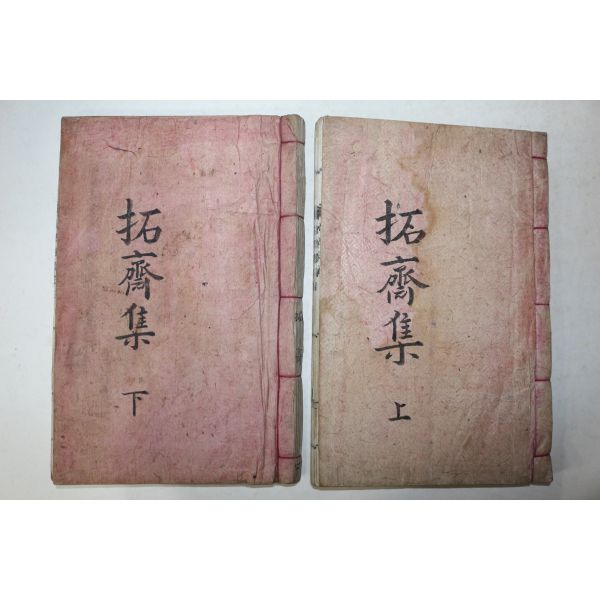 拓齋集
上
拓齋集
下